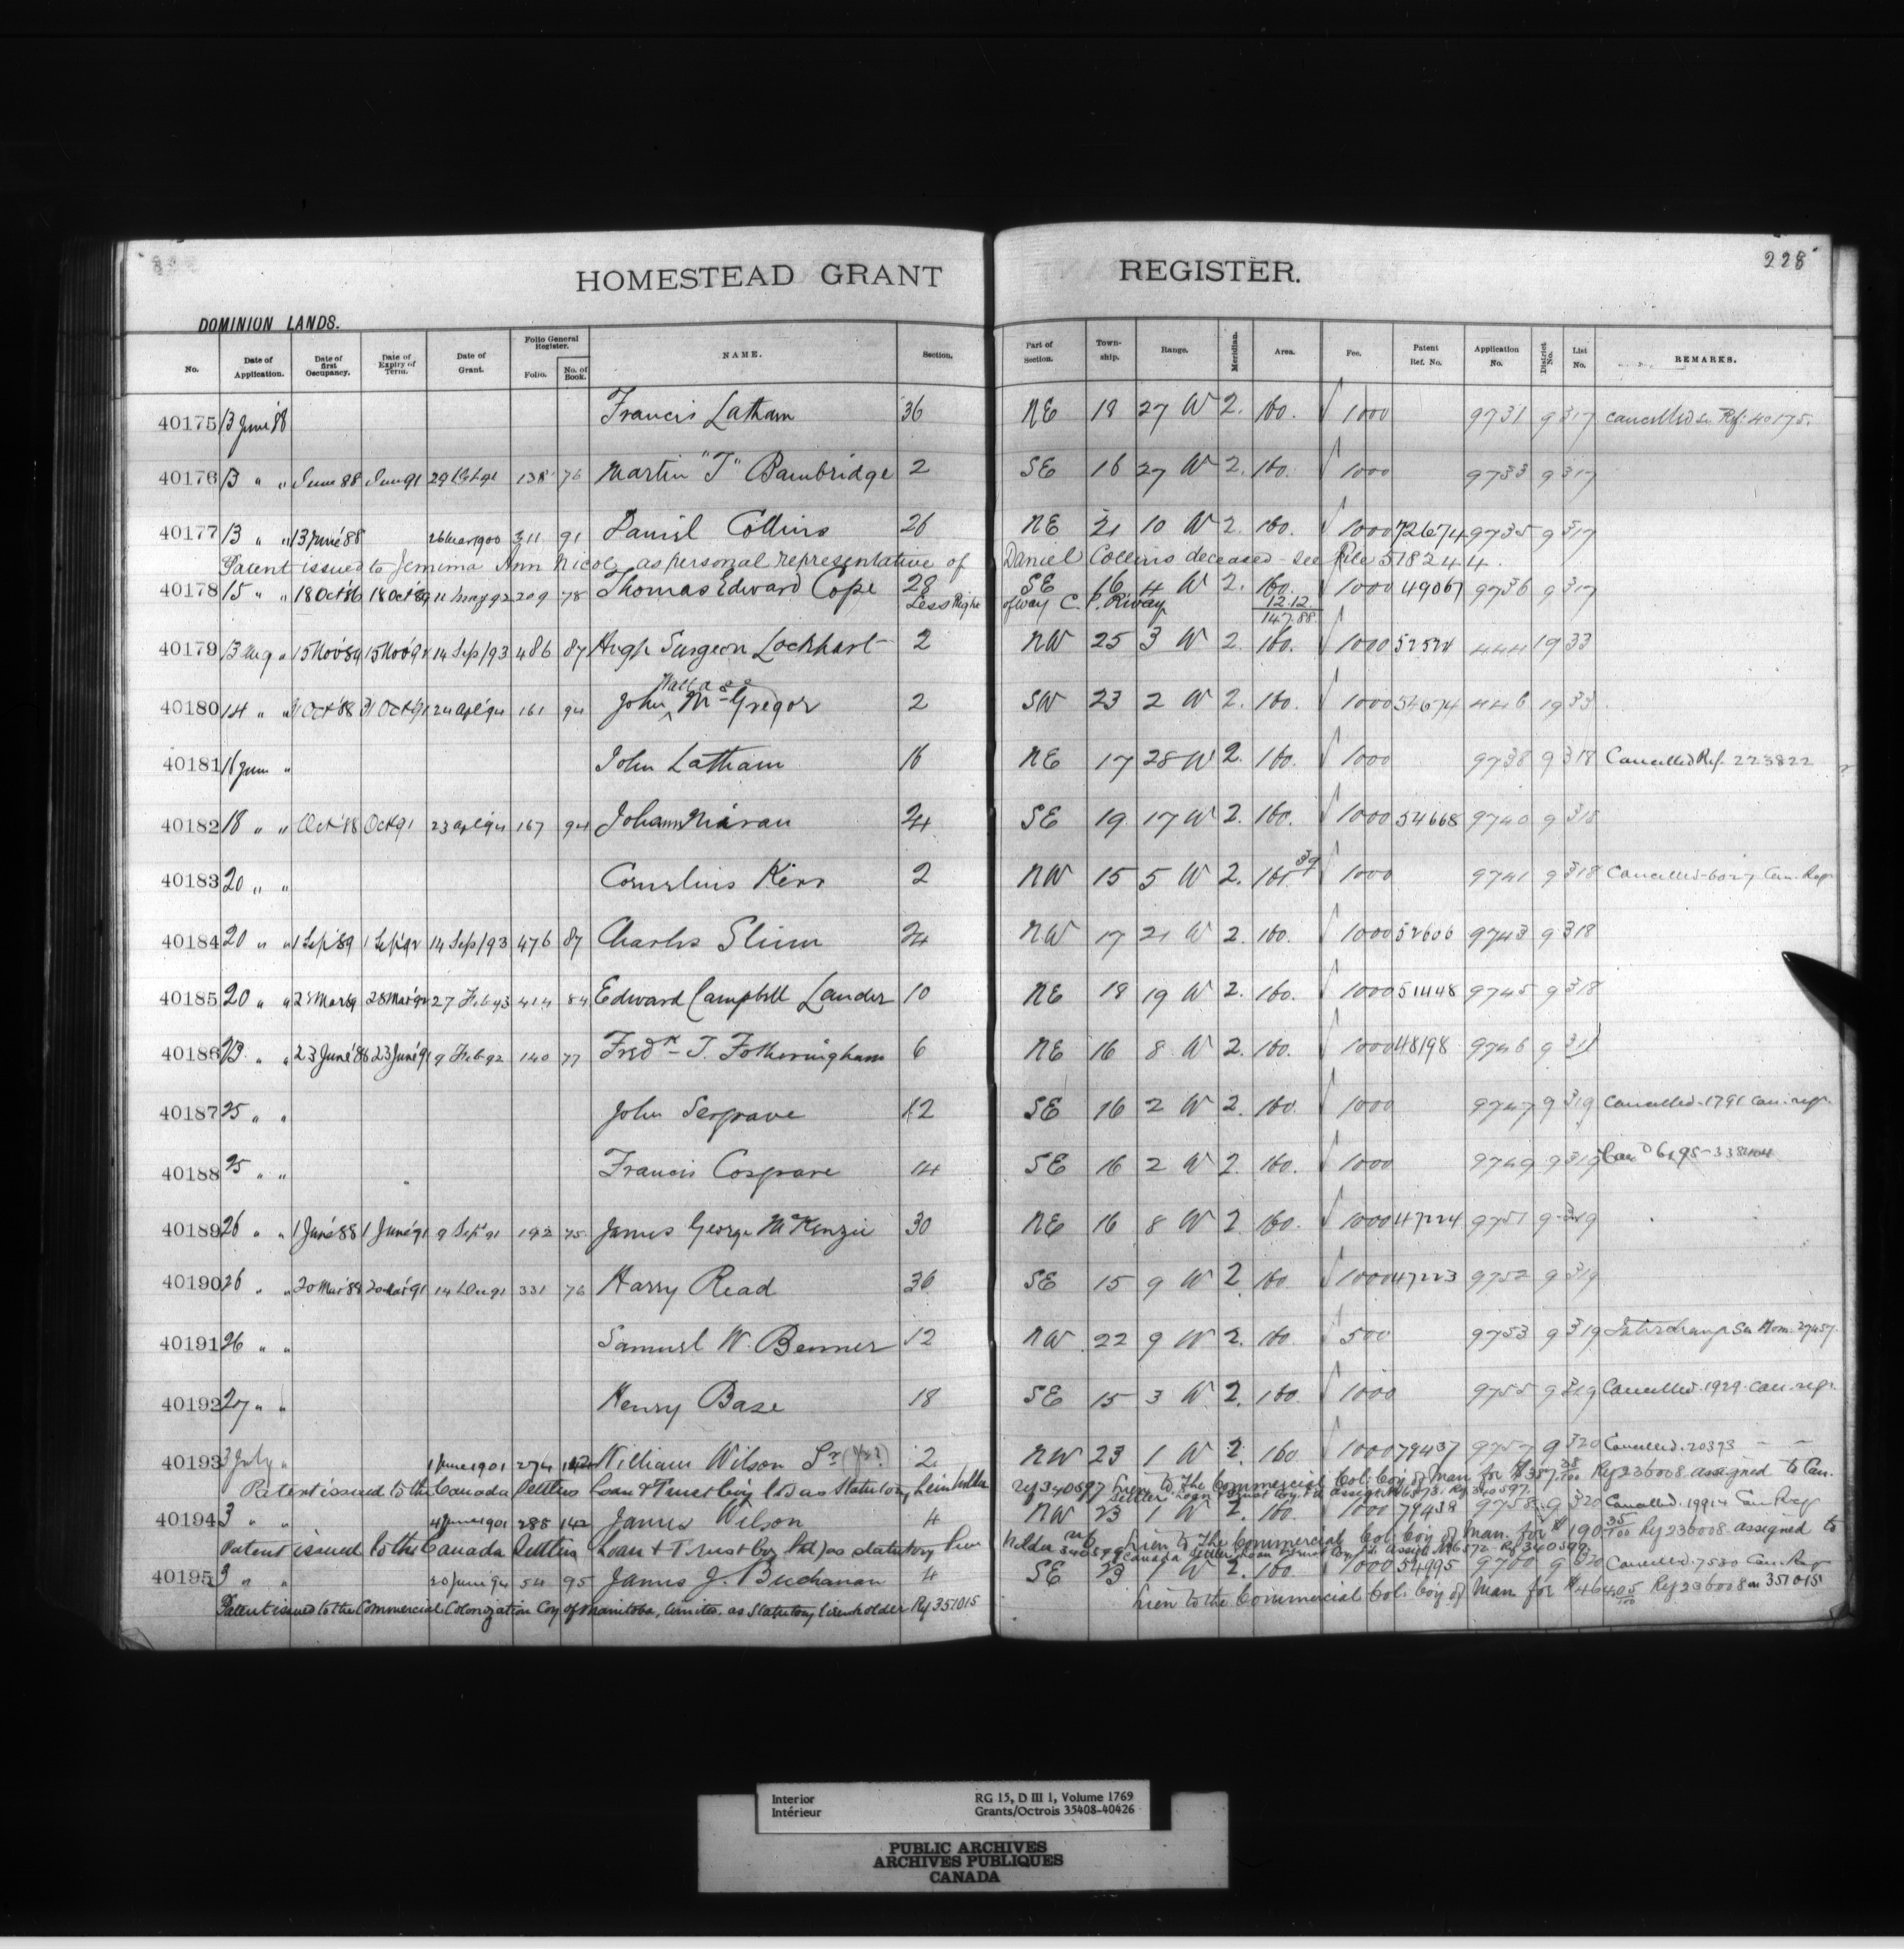 228
HOMESTEAD GRANT REGISTER.
DOMINION LANDS.
No. Date of Application. Date of first Occupancy. Date of Expiry of Term. Date of Grant. Folio General Register. Folio. No. of Book. NAME. Section. Part of Section. Township. Range. Meridian. Area. Fee. Patent Ref. No. Application No. District No. List No. REMARKS.
40175 13 June '88 Francis Latham 36 NE 18 27 W 2. 160. 1000 9731 9 317 Cancelled Ref. 40175.
40176 13 " " June 88 Jun 91 138 76 Martin "T" Bambridge 2 SE 16 27 W 2. 160. 1000 9733 9 317
40177 13 " " 13 June '88 26 Mar 1900 311 91 Daniel Collins 26 NE 21 10 W 2. 160. 1000 72674 9735 9 317
Patent issued to Jemima Ann Nicol, as personal representative of Daniel Collins deceased - see File 518244.
40178 15 " " 18 Oct '86 18 Oct '89 11 May 92 209 78 Thomas Edward Cope 28 SE 16 4 W 2. 160. 1000 49067 9736 9 317
Less Right of way C. P. R'way 12.12
147.88
40179 13 Aug " 15 Nov '89 15 Nov '92 14 Sep/93 486 87 Hugh Surgeon Lockhart 2 NW 25 3 W 2. 160. 1000 52524 444 19 33
Wallace
40180 14 " " 31 Oct '88 31 Oct '91 24 Apl '94 161 94 John McGregor 2 SW 23 2 W 2. 160. 1000 54674 446 19 33
40181 16 June " John Latham 16 NE 17 28 W 2. 160. 1000 9738 9 318 Cancelled Ref. 223822
40182 18 " " Oct '88 Oct 91 23 Apl '94 167 94 Johann 24 SE 19 17 W 2. 160. 1000 54668 9740 9 318
40183 20 " " Cornelius Kerr 2 NW 15 5 W 2. 161.39 1000 9741 9 318 Cancelled 6027 Can. Reg
40184 20 " " 1 Sep '89 1 Sep '92 14 Sep/93 476 87 Charles Slinn 24 NW 17 21 W 2. 160. 1000 52606 9743 9 318
40185 20 " " 28 Mar '92 27 Feb 93 414 84 Edward Campbell Lander 10 NE 18 19 W 2. 160. 1000 51448 9745 9 318
40186 23 " " 23 June '88 23 June '91 9 Feb 92 140 77 Fredk T. Fotheringham 6 NE 16 8 W 2. 160. 1000 48198 9746 9
40187 25 " " John Sergrave 12 SE 16 2 W 2. 160. 1000 9747 9 319 Cancelled. 1791 Can. regr.
40188 25 " " Francis Cosgrave 14 SE 16 2 W 2. 160. 1000 9749 9 319
40189 26 " " 1 June '88 1 June '91 9 Sep '91 192 75 James George McKenzie 30 NE 16 8 W 2. 160. 1000 47224 9751 9 319
40190 26 " " 20 Mar '88 20 Mar '91 14 Dec 91 331 76 Harry Read 36 SE 15 9 W 2. 160. 1000 47223 9752 9 319
40191 26 " " Samuel W. Benner 12 NW 22 9 W 2. 160. 500 9753 9 319 See Hom. 27457
40192 27 " " Henry Base 18 SE 15 3 W 2. 160. 1000 9755 9 319 Cancelled. 1929. can. regr.
40193 3 July " 1 June 1901 274 142 William Wilson Sr 2 NW 23 1 W 2. 160 1000 79437 9757 9 320 Cancelled. 20393
Patent issued to the Canada Settlers Loan & Trust Coy Ltd as Statutory Lein holder Ref 340597 Lien to The Commercial Col. Coy of Man for $357 38/100 Ref 236008 assigned to Can.
Settlers Loan & Trust Coy Ltd. Ref 340597.
40194 3 " " 4 June 1901 288 142 James Wilson 4 NW 23 1 W 2. 160. 1000 79438 9758 9 320 Cancelled. 19914 Can Reg
Patent issued to the Canada Settlers Loan & Trust Coy Ltd) as statutory lien holder Lien to The Commercial Col. Coy of Man. for $190 35/100 Ref 236008 assigned to
Canada Settlers Loan & Trust Coy Ltd. Ref 340599
40195 3 " " 20 June 94 54 95 James J. Buchanan 4 SE 23 1 W 2. 160 1000 54995 9760 9 320 Cancelled. 7530 Can Reg
Patent issued to the Commercial Colonization Coy of Manitoba, Limited. as Statutory lienholder Ref 351015 Lien to the Commercial Col. Coy of Man for Ref 236008 on 351015
Interior
Intérieur
RG 15, D III 1, Volume 1769
Grants/Octrois 35408-40426
PUBLIC ARCHIVES
ARCHIVES PUBLIQUES
CANADA